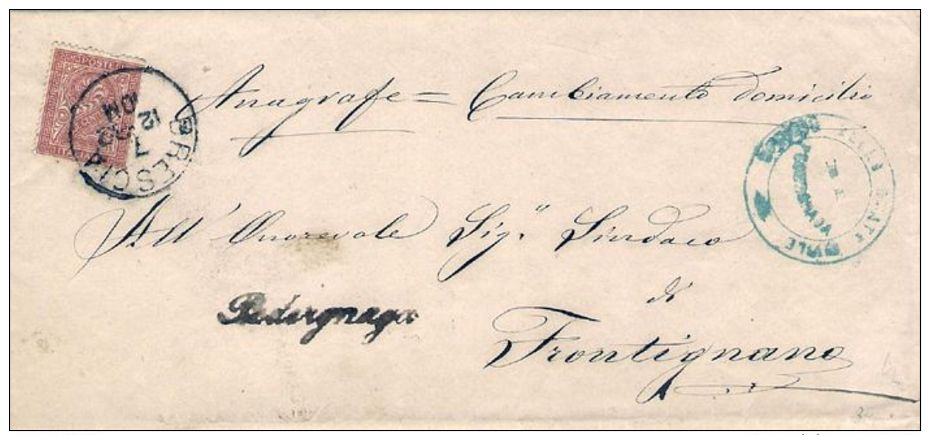 POSTE
BRESCIA
7
12
10 M
Anagrafe = Cambiamento domicilio
STATO CIVILE
All' Onorevole Sig." Sindaco
di
Pedergnaga
Frontignano